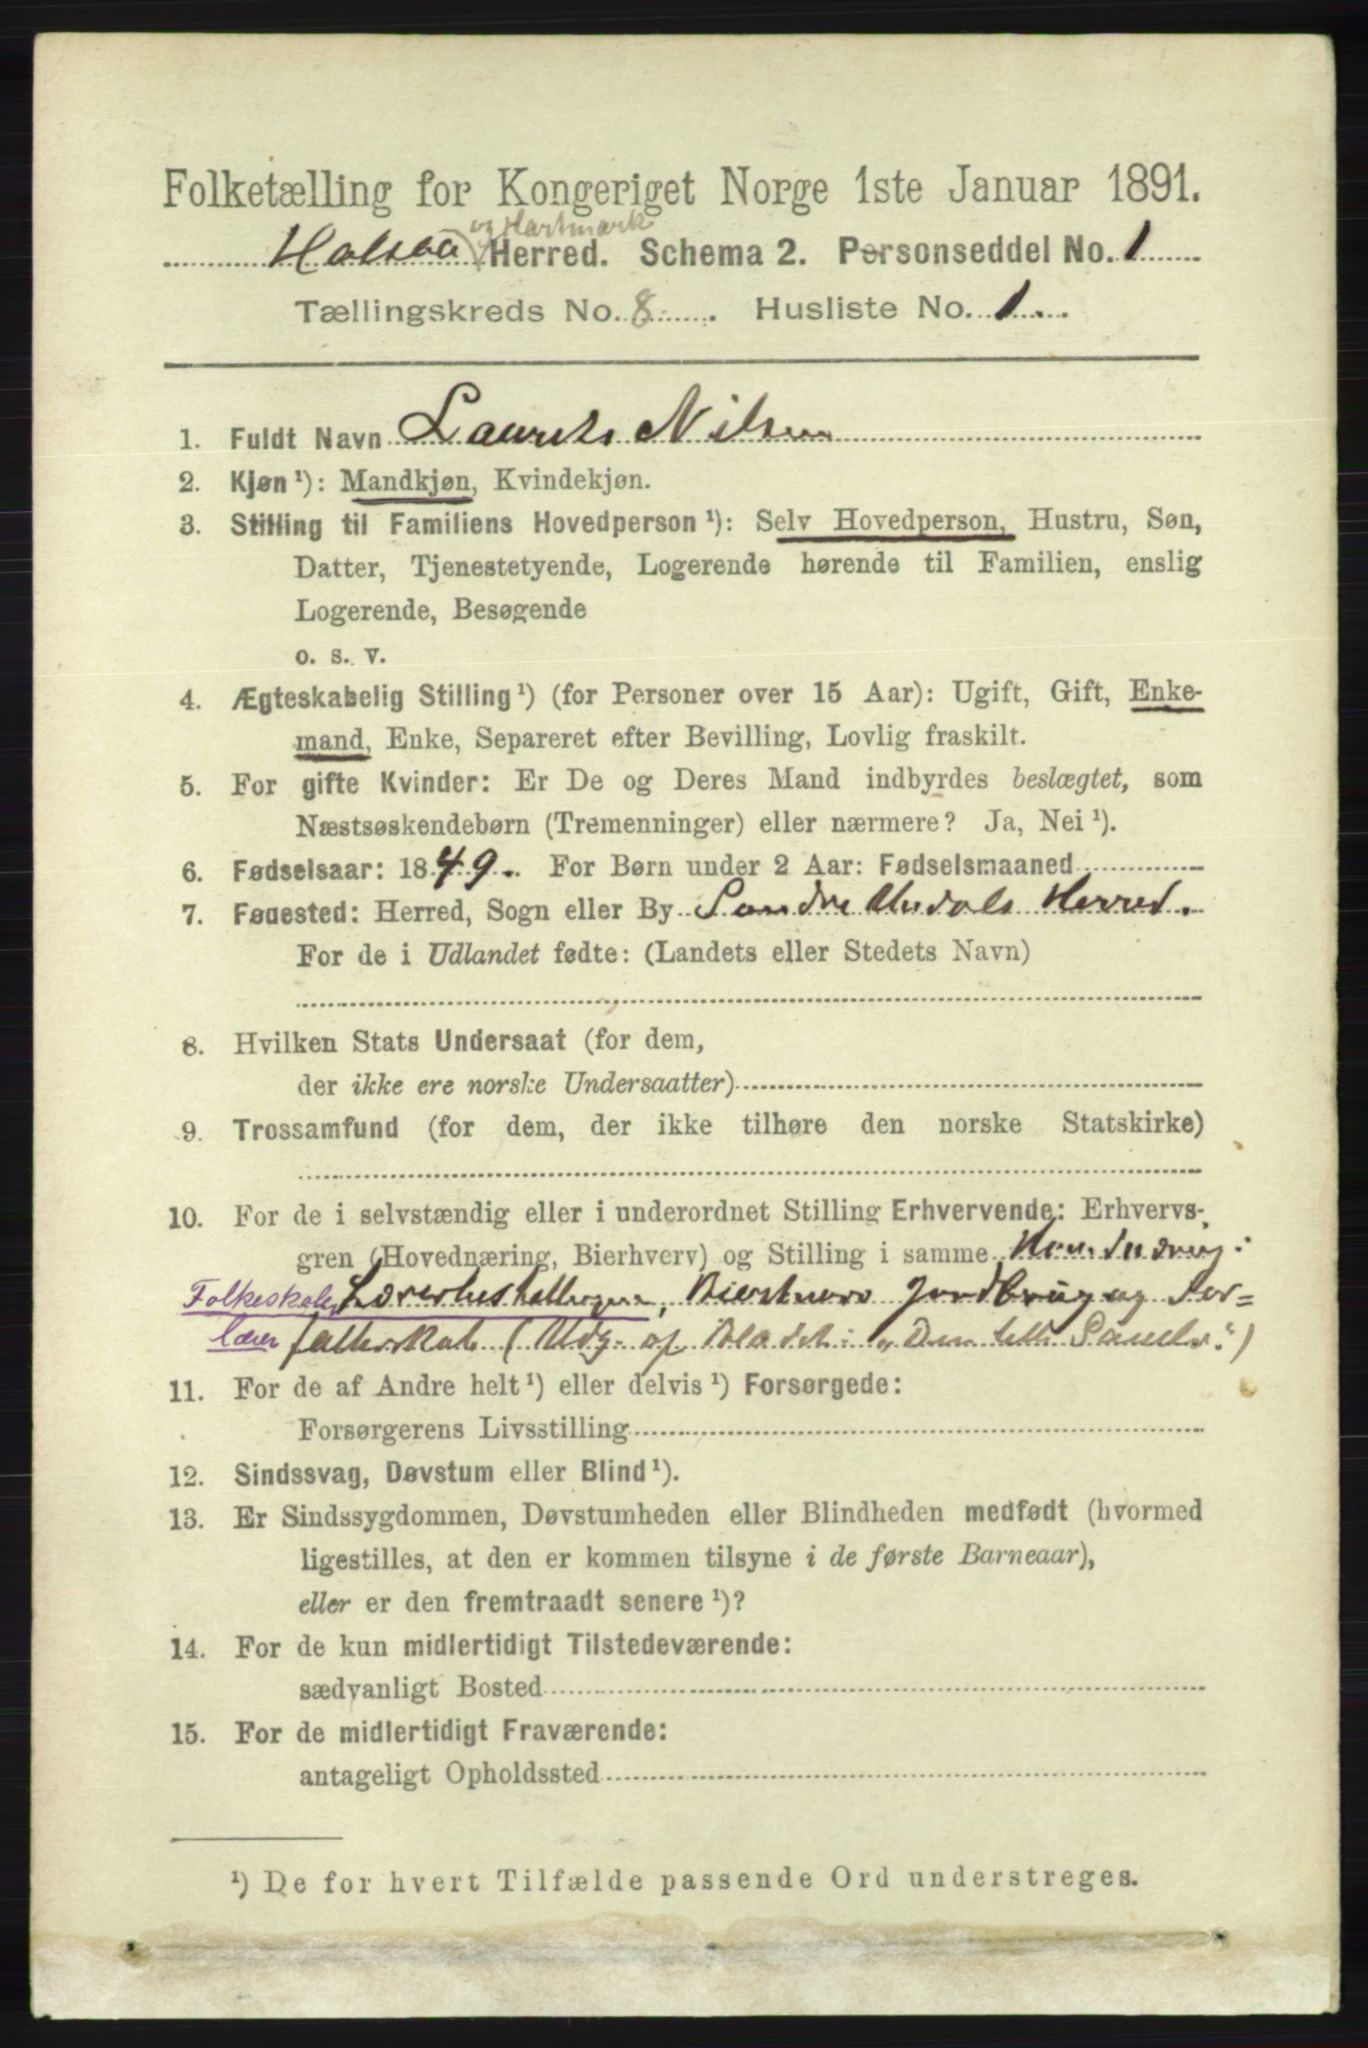 Folketælling for Kongeriget Norge 1ste Januar 1891.
og Hartmark
Halsaa Herred. Schema 2. Personseddel No. 1
Tællingskreds No. 8. Husliste No. 1.
1. Fuldt Navn Laurits Nilsen
2. Kjøn ¹): Mandkjøn, Kvindekjøn.
3. Stilling til Familiens Hovedperson ¹): Selv Hovedperson, Hustru, Søn,
Datter, Tjenestetyende, Logerende hørende til Familien, enslig
Logerende, Besøgende
o. s. v.
4. Ægteskabelig Stilling ¹) (for Personer over 15 Aar): Ugift, Gift, Enke-
mand, Enke, Separeret efter Bevilling, Lovlig fraskilt.
5. For gifte Kvinder: Er De og Deres Mand indbyrdes beslægtet, som
Næstsøskendebørn (Tremenninger) eller nærmere? Ja, Nei ¹).
6. Fødselsaar: 1849. For Børn under 2 Aar: Fødselsmaaned
7. Fødested: Herred, Sogn eller By Søndre Undals Herred.
For de i Udlandet fødte: (Landets eller Stedets Navn)
8. Hvilken Stats Undersaat (for dem,
der ikke ere norske Undersaatter)
9. Trossamfund (for dem, der ikke tilhøre den norske Statskirke)
10. For de i selvstændig eller i underordnet Stilling Erhvervende: Erhvervs-
gren (Hovednæring, Bierhverv) og Stilling i samme Hovednæring:
Folkeskole Lærerbestillingen, Bierhverv Jordbrug og For=
lærer fatterskab (Udg. af Bladet: „Den lille Samler.")
11. For de af Andre helt ¹) eller delvis ¹) Forsørgede:
Forsørgerens Livsstilling
12. Sindssvag, Døvstum eller Blind ¹).
13. Er Sindssygdommen, Døvstumheden eller Blindheden medfødt (hvormed
ligestilles, at den er kommen tilsyne i de første Barneaar),
eller er den fremtraadt senere ¹)?
14. For de kun midlertidigt Tilstedeværende:
sædvanligt Bosted
15. For de midlertidigt Fraværende:
antageligt Opholdssted
¹) De for hvert Tilfælde passende Ord understreges.